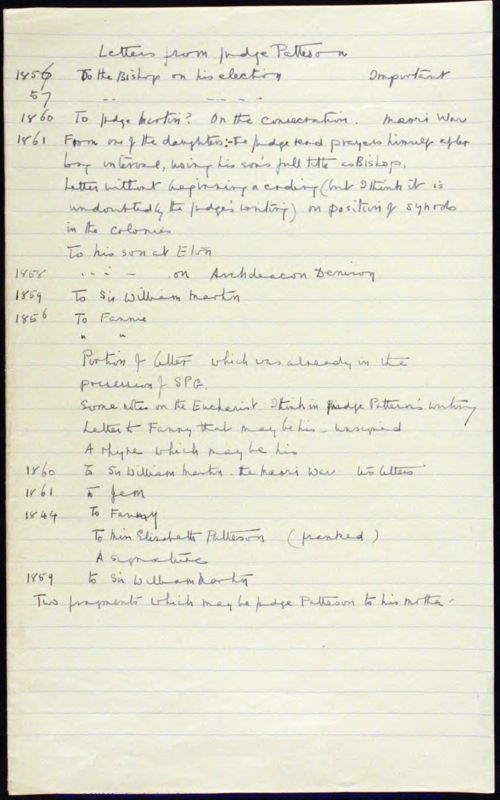 Letters from Judge Patteson
1856 To the Bishop on his election Important
57 " - - - -
1860 To Judge Martin? On the consecration. Maori War
1861 From one of the daughters:- The Judge read prayers himself after
long interval, using his son's full title as Bishop.
Letter without beginning or ending (but I think it is
undoubtedly the Judge's writing) on position of synods
in the colonies
To his son at Eton
1858 " " - on Archdeacon Denison
1859 To Sir William Martin
1856 To Fannie
" "
Portion of letter which was already in the
possession of SPG.
Some notes on the Eucharist I think in Judge Patteson's writing
Letter to Fanny that may be his - unsigned
A rhyme which may be his
1860 to Sir William Martin. the Maori War two letters
1861 to Jem
1844 To Fanny
To Miss Elizabeth Patteson (franked)
A signature
1859 to Sir William Martin
Two fragments which may be Judge Patteson to his mother.